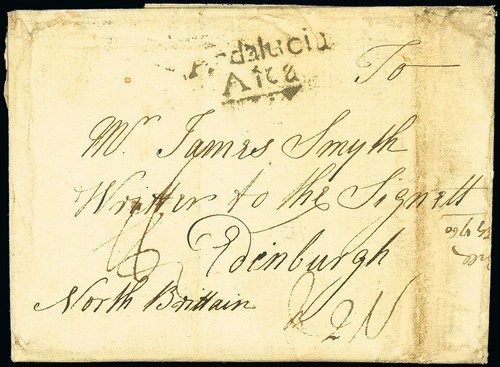 Andalucia
Alta
To
Mr James Smyth
Writter to the Signett
Edenburgh
North Brittain
2N